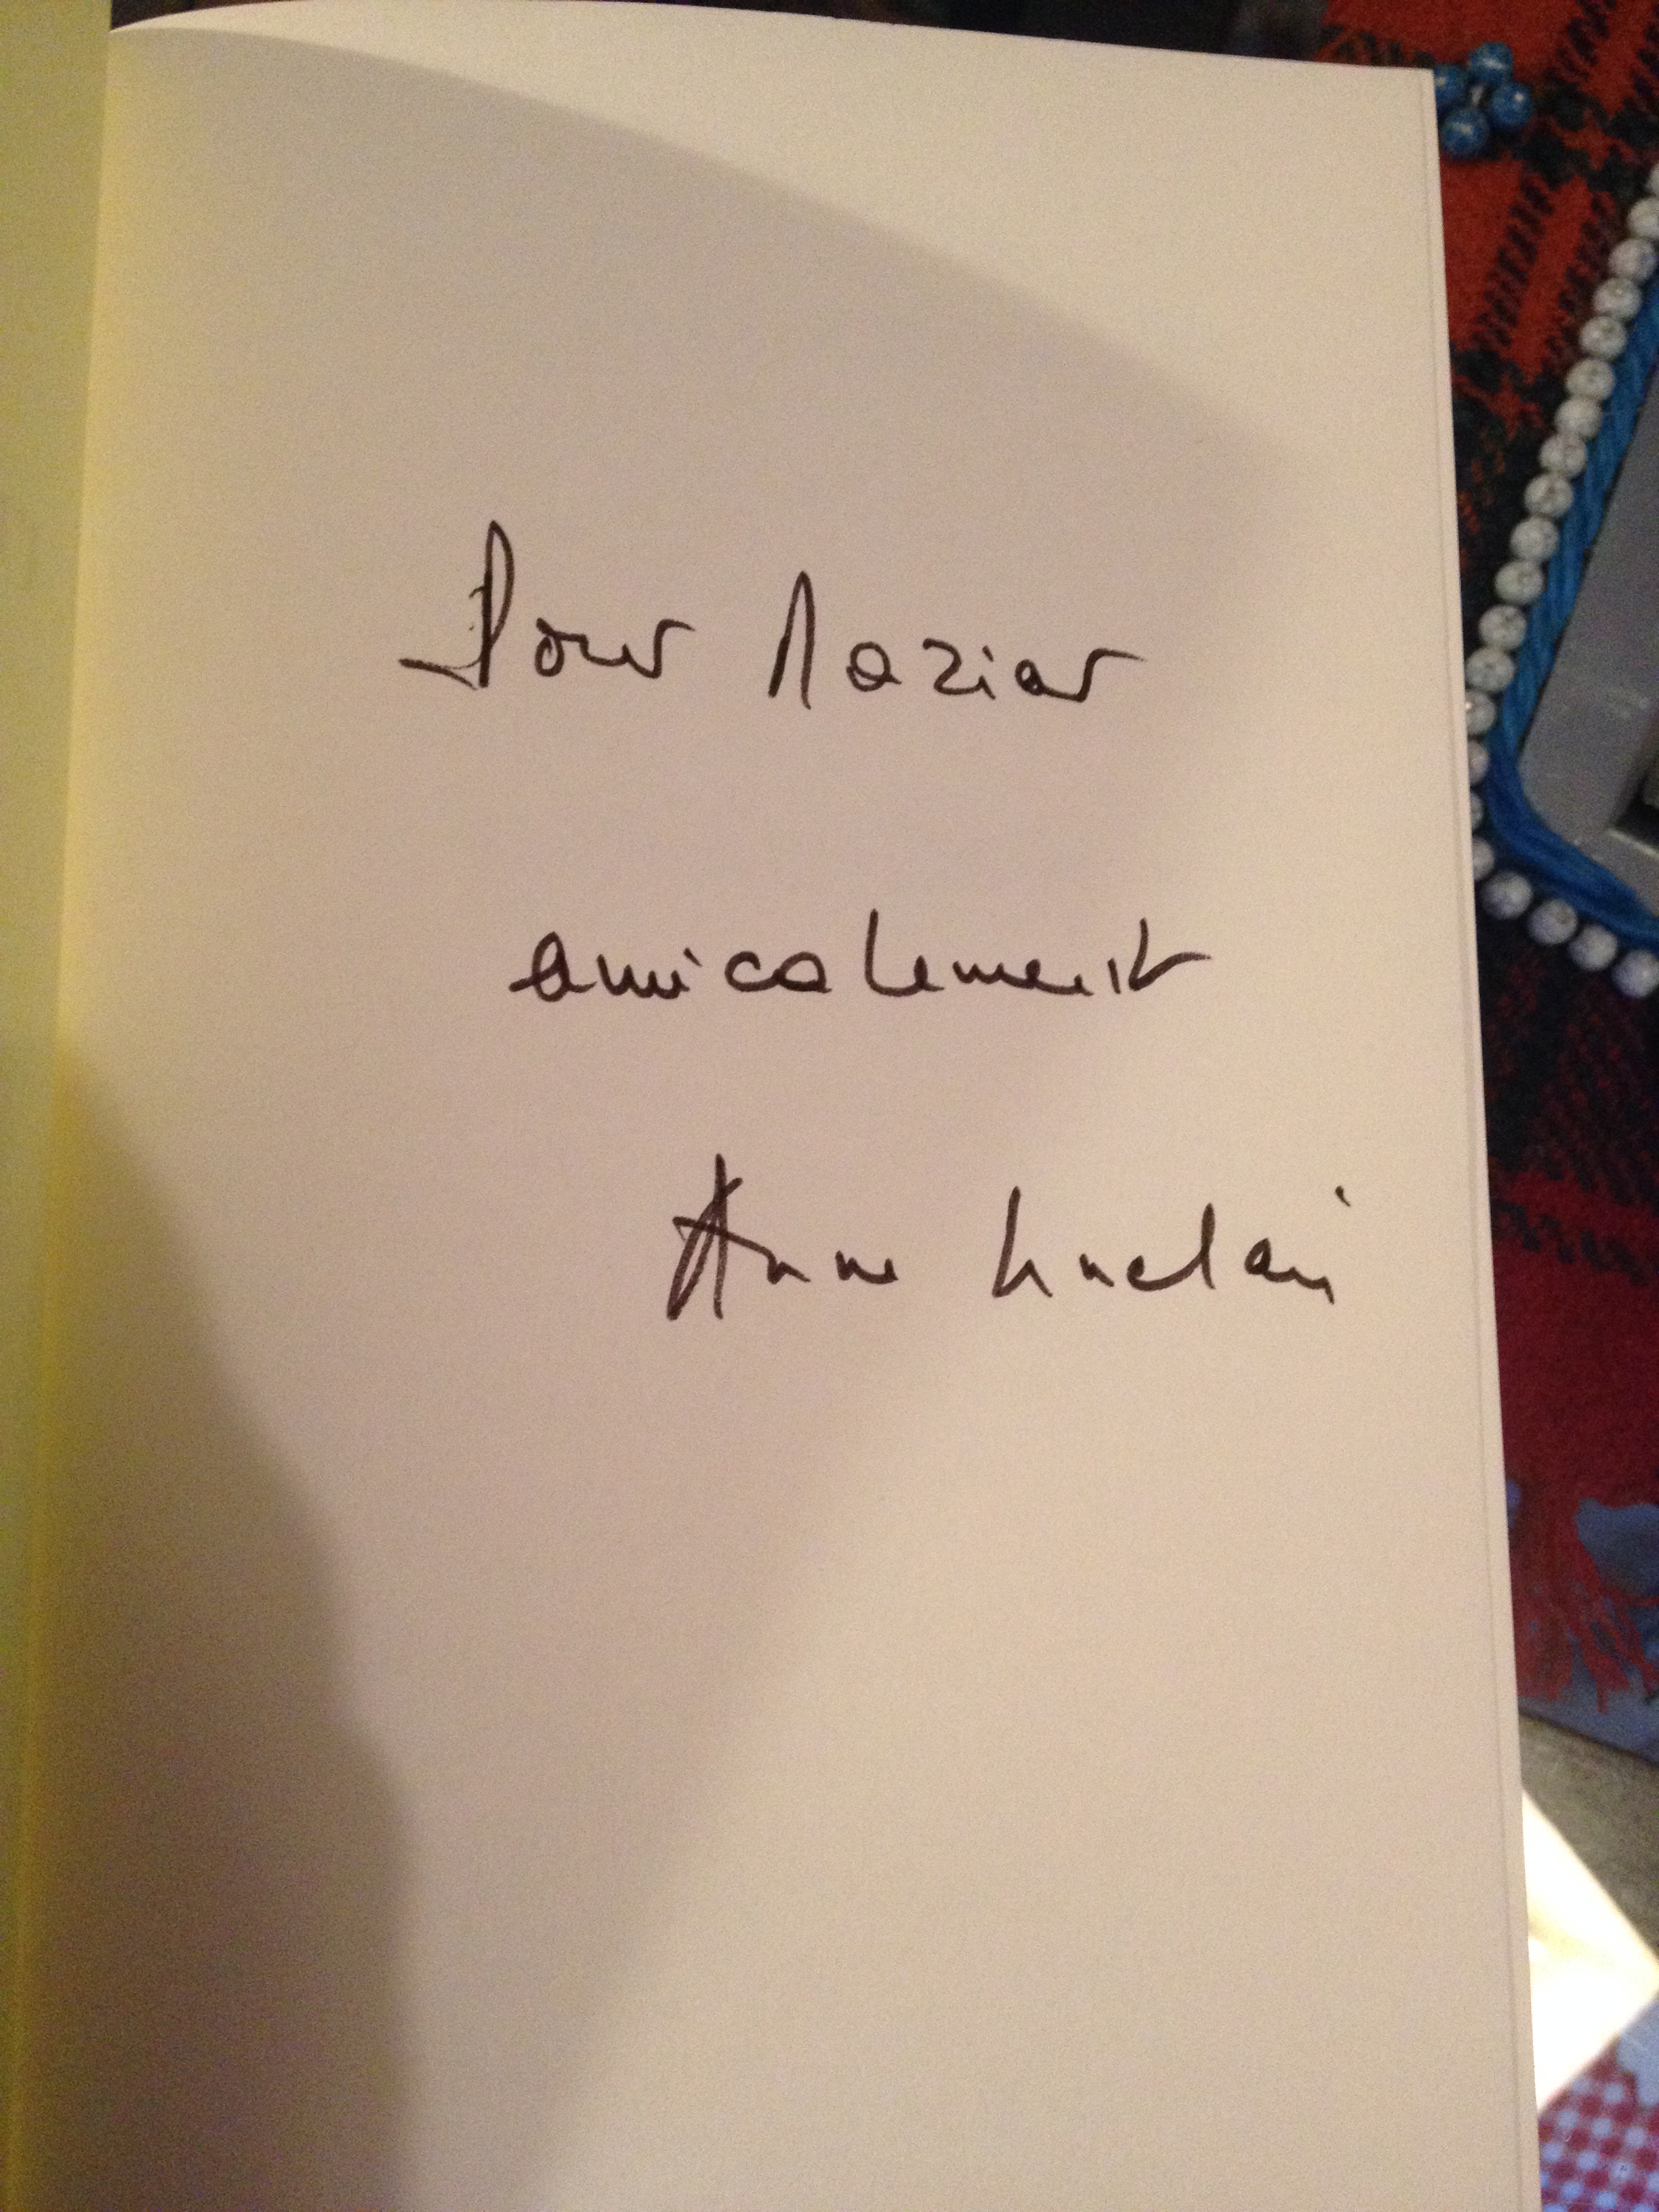 Pour Maziar
amicalement
Anne Sinclair